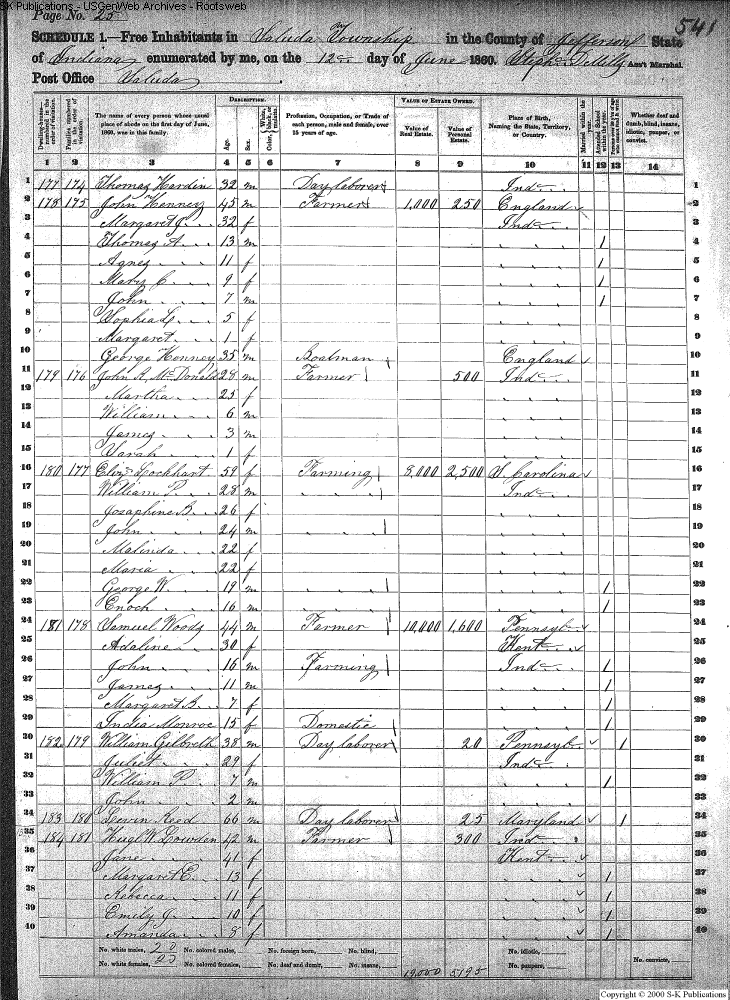 S-K Publications - USGenWeb Archives - Rootsweb
Page No. 25
541
SCHEDULE 1.—Free Inhabitants in Saluda Township in the County of Jefferson State
of Indiana enumerated by me, on the 12 day of June 1860. Ass't Marshal.
Post Office Saluda
DESCRIPTION. VALUE OF ESTATE OWNED.
Dwelling-houses—numbered in the order of visitation. Families numbered in the order of visitation. The name of every person whose usual place of abode on the first day of June, 1860, was in this family. Age. Sex. Color, White, black, or mulatto. Profession, Occupation, or Trade of each person, male and female, over 15 years of age. Value of Real Estate. Value of Personal Estate. Place of Birth, Naming the State, Territory, or Country. Married within the year. Attended School within the year. Whether deaf and dumb, blind, insane, idiotic, pauper, or convict.
1 2 3 4 5 6 7 8 9 10 11 12 13 14
1 177 174 Thomas Hardin 32 m Day laborer Ind 1
2 178 175 John Kenney 45 m Farmer 1,000 250 England 2
3 Margaret J. 32 f Ind 3
4 Thomas A. 13 m " " 1 4
5 Agnes 11 f " " 1 5
6 Mary C. 9 f " " 1 6
7 John 7 m " " 1 7
8 Sophia L. 5 f " " 8
9 Margaret 1 f " " 9
10 George Kenney 35 m Boatman England 10
11 179 176 John R. McDonald 28 m Farmer 500 Ind 11
12 Martha 25 f " " 12
13 William 6 m " " 13
14 James 3 m " " 14
15 Sarah 1 f " " 15
16 180 177 Eliz Lockhart 59 f Farming 8,000 2,500 S Carolina 16
17 William P. 28 m " " Ind 17
18 Josaphine B. 26 f " " 18
19 John 24 m " " " " 19
20 Malinda 22 f " " 20
21 Maria 22 f " " 21
22 George W. 19 m " " " " 1 22
23 Enoch 16 m " " " " 1 23
24 181 178 Samuel Woods 44 m Farmer 10,000 1,600 Pennsyl 24
25 Adaline 30 f Kent 25
26 John 16 m Farming Ind 1 26
27 James 11 m " " 1 27
28 Margaret B. 7 f " " 1 28
29 India Monroe 15 f Domestic " " 1 29
30 182 179 William Gilbreth 38 m Day laborer 20 Pennsyl 1 30
31 Juliet 29 f Ind 31
32 William P. 7 m " " 1 32
33 John 2 m " " 33
34 183 180 Levin Reed 66 m Day laborer 25 Maryland 1 34
35 184 181 Hugh W. Lowden 42 m Farmer 300 Ind 35
36 Jane 41 f Kent 36
37 Margaret E. 13 f " " 1 37
38 Rebecca 11 f " " 1 38
39 Emily J. 10 f " " 1 39
40 Amanda 8 f " " 1 40
No. white males, 20 No. colored males, No. foreign born, No. blind, No. idiotic,
No. white females, 20 No. colored females, No. deaf and dumb, No. insane, 19,000 5195 No. paupers, No. convicts,
Copyright © 2000 S-K Publications